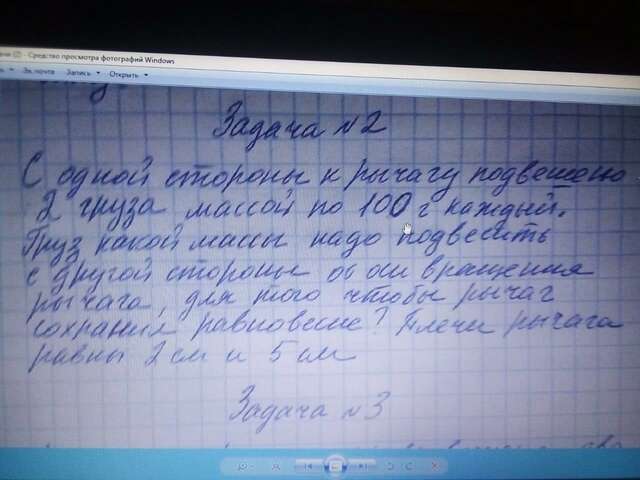 Средство просмотра фотографий Windows
Эл. почта Запись Открыть
Задача №2
С одной стороны к рычагу подвешено
2 груза массой по 100 г каждый.
Груз какой массы надо подвесить
с другой стороны от оси вращения
рычага, для того чтобы рычаг
сохранил равновесие? Плечи рычага
равны 2 см и 5 см
Задача №3